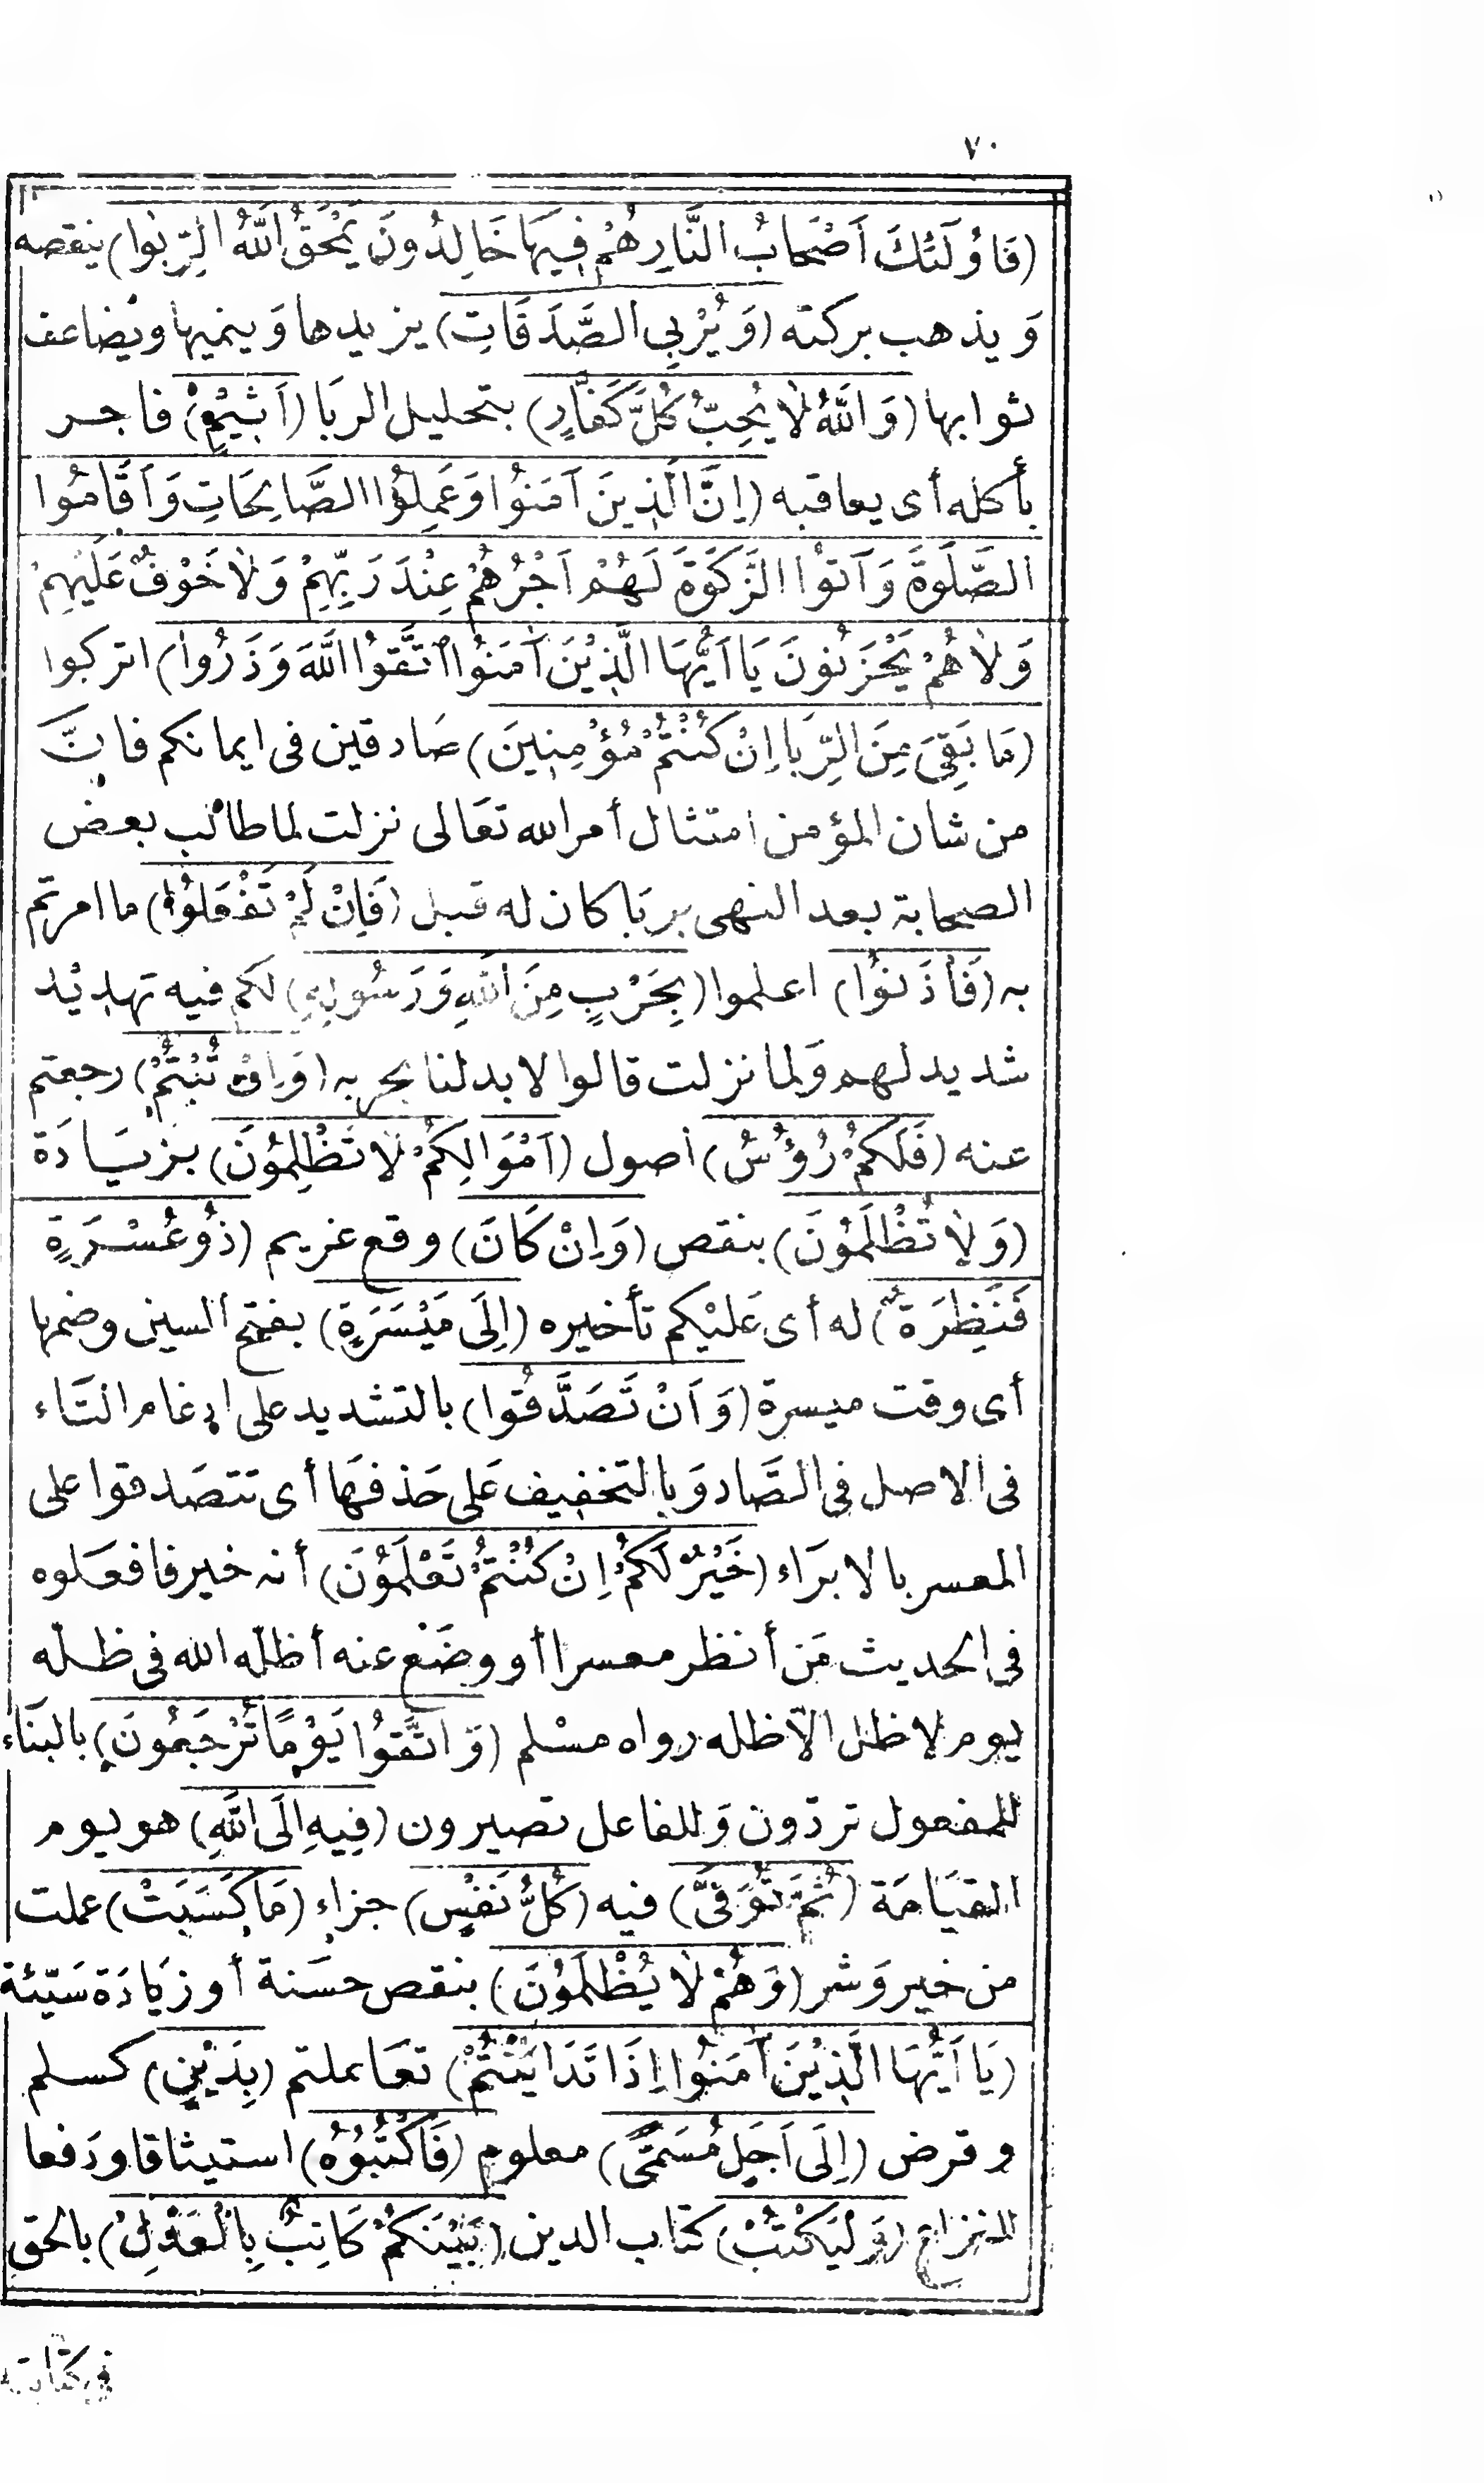 ٧٠
(فَاُولَئِكَ اَصْحَابُ النَّارِ هُمْ فِيهَا خَالِدُونَ يَمْحَقُ اللّٰهُ الرِّبٰوا) ينقصه
وَيذهب بركته (وَيُرْبِي الصَّدَقَاتِ) يزيدها وَينميها ويضاعف
ثوابها (وَاللّٰهُ لَا يُحِبُّ كُلَّ كَفَّارٍ) بتحليل الربَا (اَثِيْمٍ) فاجر
بأكله أى يعاقبه (اِنَّ الَّذِينَ آمَنُوا وَعَمِلُوا الصَّالِحَاتِ وَاَقَامُوا
الصَّلَوةَ وَآتَوْا الزَّكَوةَ لَهُمْ اَجْرُهُمْ عِنْدَ رَبِّهِمْ وَلَا خَوْفٌ عَلَيْهِمْ
وَلَا هُمْ يَحْزَنُونَ يَا اَيُّهَا الَّذِيْنَ آمَنُوا اتَّقُوا اللّٰهَ وَذَرُوا) اتركوا
(مَا بَقِىَ مِنَ الرِّبَا اِنْ كُنْتُمْ مُؤْمِنِينَ) صَادقين فى ايمانكم فانَّ
من شان المؤمن امتثال أمر الله تعَالى نزلت لما طالب بعض
الصحابة بعد النهى بربَا كان له قبل (فَاِنْ لَمْ تَفْعَلُوا) ما امرتم
به (فَأْذَنُوا) اعلموا (بِحَرْبٍ مِنَ اللّٰهِ وَرَسُولِهِ) لكم فيه تهديد
شديد لهم وَلما نزلت قالوا لا بد لنا بحربه (وَاِنْ تُبْتُمْ) رجعتم
عنه (فَلَكُمْ رُؤُسُ) أصول (اَمْوَالِكُمْ لَا تَظْلِمُوْنَ) بزيَادَة
(وَلَا تُظْلَمُوْنَ) بنقص (وَاِنْ كَانَ) وقع غريم (ذُو عُسْرَةٍ
فَنَظِرَةٌ) له أى عَليْكم تأخيره (اِلَى مَيْسَرَةٍ) بفتح السين وضمها
أى وقت ميسرة (وَاَنْ تَصَدَّقُوا) بالتشديد على ادغام التَاء
فى الاصل فى الصَّاد وَبالتخفيف عَلى حَذفهَا أى تتصَدقوا على
المعسر بالابرَاء (خَيْرٌ لَكُمْ اِنْ كُنْتُمْ تَعْلَمُوْنَ) أنه خير فافعَلوه
فى الحديث مَن أنظر معسرا أو وضَع عنه أظلّه الله فى ظلّه
يوم لا ظل الّا ظله رواه مسْلم (وَاتَّقُوا يَوْمًا تُرْجَعُونَ) بالبنَاء
للمفعول تردّون وَللفاعل تصيرون (فِيهِ اِلَى اللّٰهِ) هو يوم
القيَامَة (ثُمَّ تُوَفَّى) فيه (كُلُّ نَفْسٍ) جزاء (مَا كَسَبَتْ) عملت
من خير وَشر (وَهُمْ لَا يُظْلَمُوْنَ) بنقص حسَنة أو زيَادَة سَيّئة
(يَا اَيُّهَا الَّذِيْنَ آمَنُوا اِذَا تَدَايَنْتُمْ) تعَاملتم (بِدَيْنٍ) كسلم
وقرض (اِلَى اَجَلٍ مُسَمًّى) معلوم (فَاكْتُبُوْهُ) استيثاقا ودَفعا
للنزاع (وَلْيَكْتُبْ) كتاب الدين (بَيْنَكُمْ كَاتِبٌ بِالْعَدْلِ) بالحق
فى كتابته